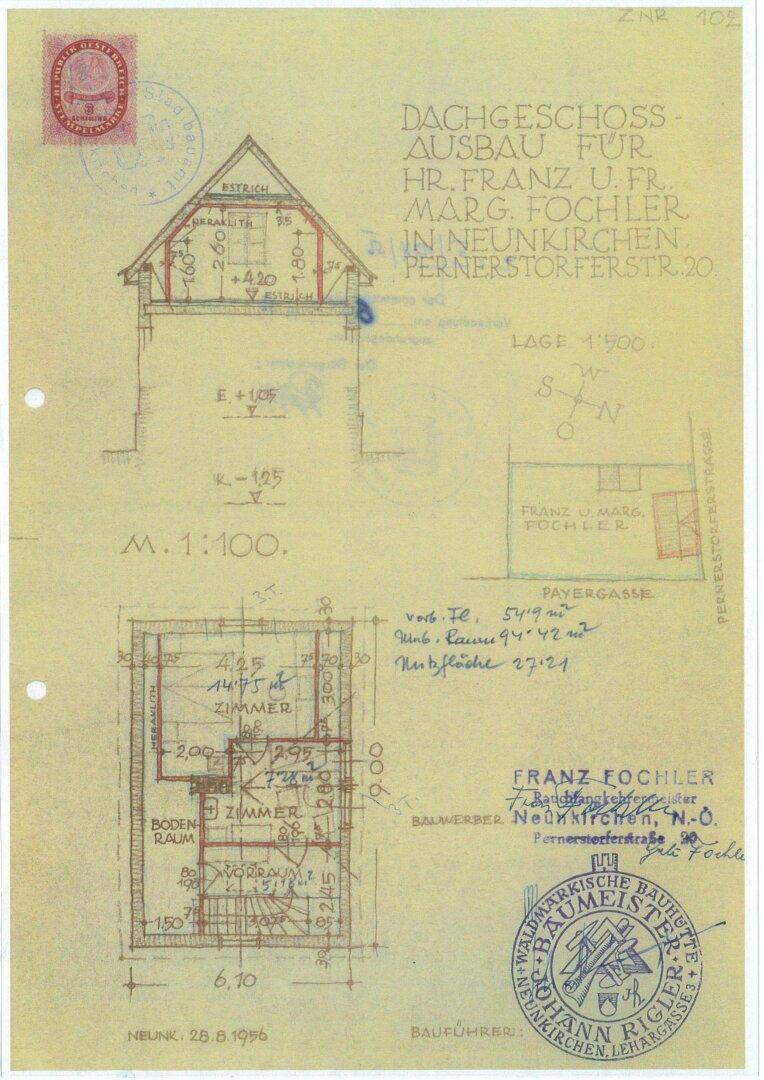 ZNR 102
REPUBLIK OESTERREICH
3
SCHILLING
STEMPELMARKE
Stadtbauamt
DACHGESCHOSS-
AUSBAU FÜR
HR. FRANZ U. FR.
MARG. FOCHLER
IN NEUNKIRCHEN,
PERNERSTORFERSTR. 20.
ESTRICH
HERAKLITH
35
75
1.60
2.60
1.80
75
+4.20
ESTRICH
E. +1,05
K. -1.25
M. 1:100.
LAGE 1:500.
W
S
N
O
FRANZ U. MARG.
FOCHLER
PERNERSTORFERSTRASSE
PAYERGASSE
verb. Fl. 54.9 m²
Umb. Raum 94.42 m²
Nutzfläche 27.21
30
30
40
75
4.25
75
70
30
14.75 m²
ZIMMER
300
HERAKLITH
2,00
75
2.95
7.28 m²
280
9.00
ZIMMER
BODEN-
RAUM
80
190
VORRAUM
5.18 m²
2.45
75
1.50
30
6.10
FRANZ FOCHLER
Rauchfangkehrermeister
BAUWERBER
Neunkirchen, N.-Ö.
Pernerstorferstraße 20
WALDMÄRKISCHE BAUHÜTTE
BAUMEISTER
JOHANN RIGLER
NEUNKIRCHEN, LEHARGASSE 3
NEUNK. 28.8.1956
BAUFÜHRER: